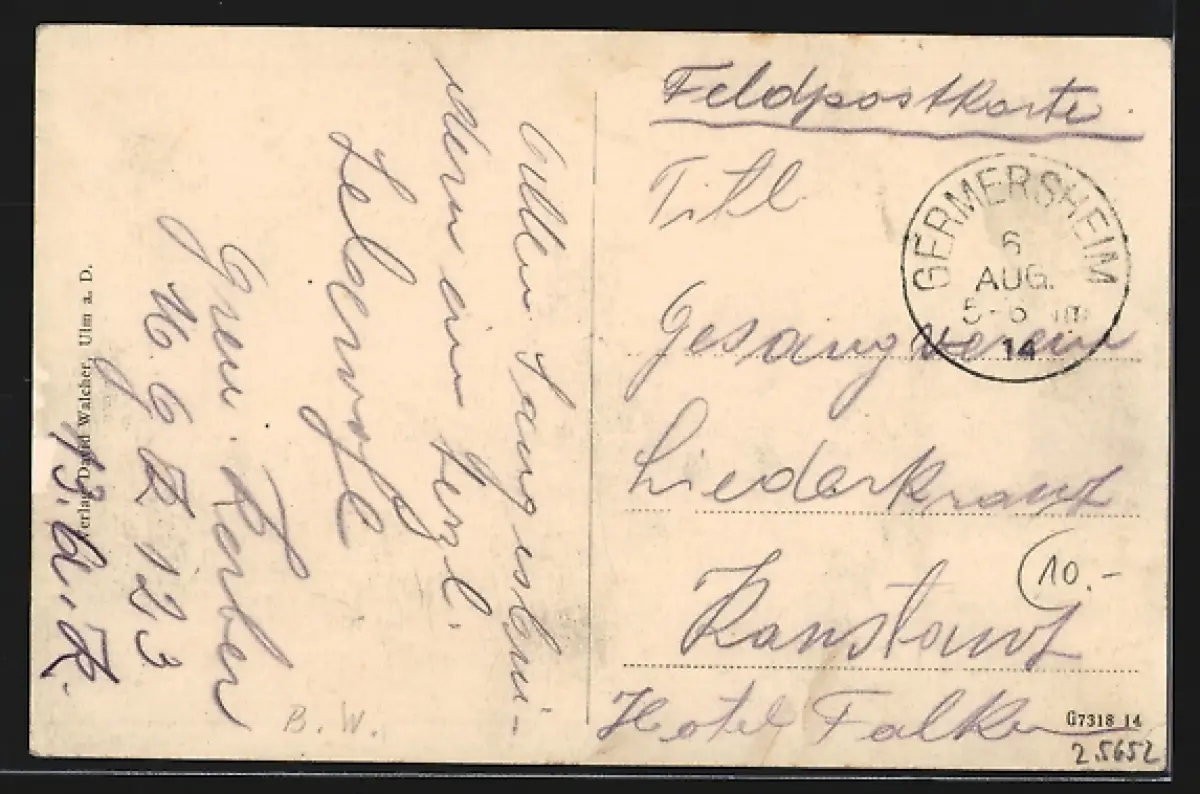 Feldpostkarte
Titl
Gesangverein
Liederkranz
Konstanz
Hotel Falken
GERMERSHEIM
6
AUG.
5-6
14
Allen Sangesbrü-
dern ein herzl.
Lebewohl
Korber
123
Verlag David Walcher, Ulm a. D.
B. W.
10.-
G7318 14
2.5652